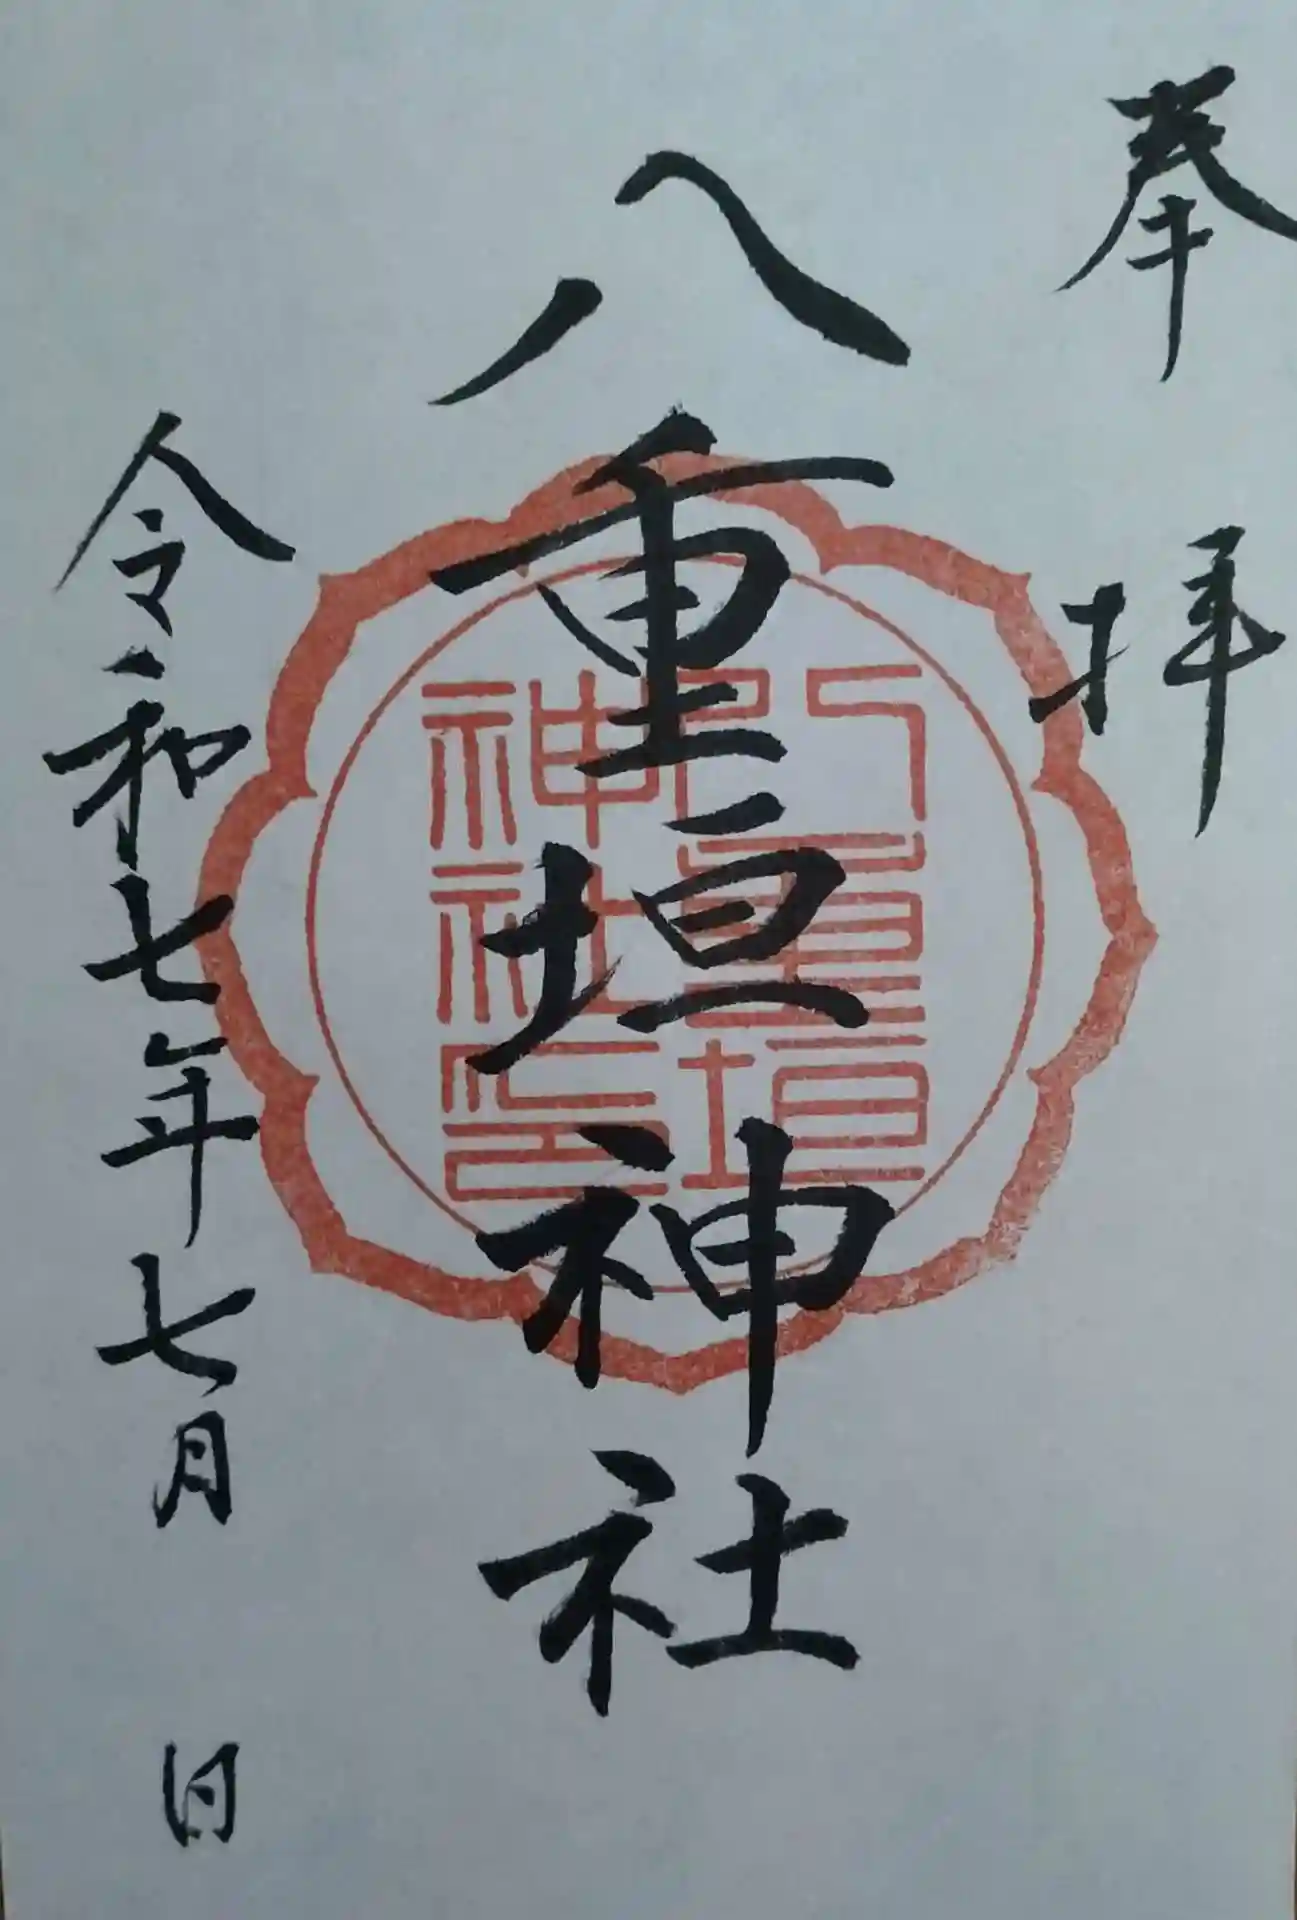 奉拝
八重垣神社
八重垣
神社印
令和七年七月 日